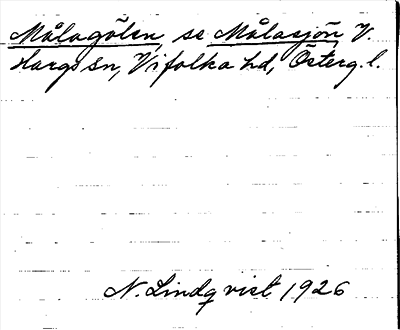 Målagölen, se Målasjön V.
Hargs sn, Vifolka hd, Österg. l.
N. Lindqvist 1926